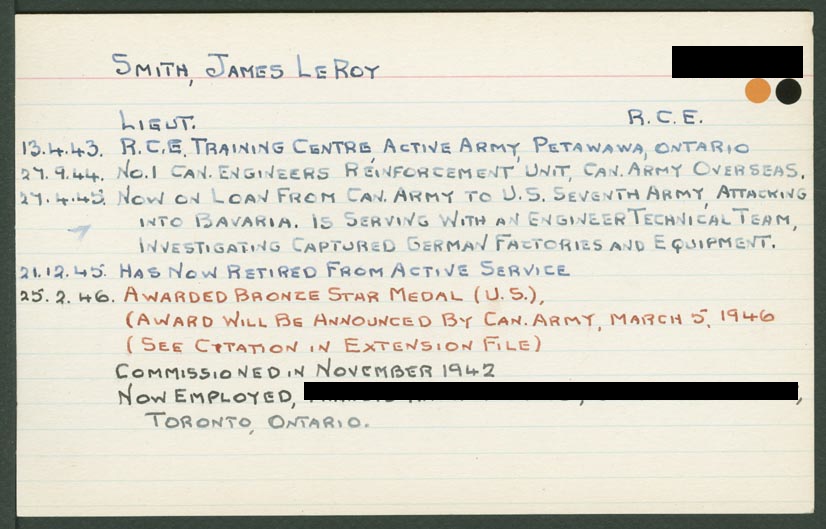 SMITH, JAMES LEROY
LIEUT. R.C.E.
13.4.43. R.C.E. TRAINING CENTRE, ACTIVE ARMY, PETAWAWA, ONTARIO
27.9.44. NO.1 CAN. ENGINEERS REINFORCEMENT UNIT, CAN. ARMY OVERSEAS.
27.4.45. NOW ON LOAN FROM CAN. ARMY TO U.S. SEVENTH ARMY, ATTACKING
INTO BAVARIA. IS SERVING WITH AN ENGINEER TECHNICAL TEAM,
INVESTIGATING CAPTURED GERMAN FACTORIES AND EQUIPMENT.
21.12.45. HAS NOW RETIRED FROM ACTIVE SERVICE
25.2.46. AWARDED BRONZE STAR MEDAL (U.S.),
(AWARD WILL BE ANNOUNCED BY CAN. ARMY, MARCH 5, 1946
(SEE CITATION IN EXTENSION FILE)
COMMISSIONED IN NOVEMBER 1942
NOW EMPLOYED,
TORONTO, ONTARIO.